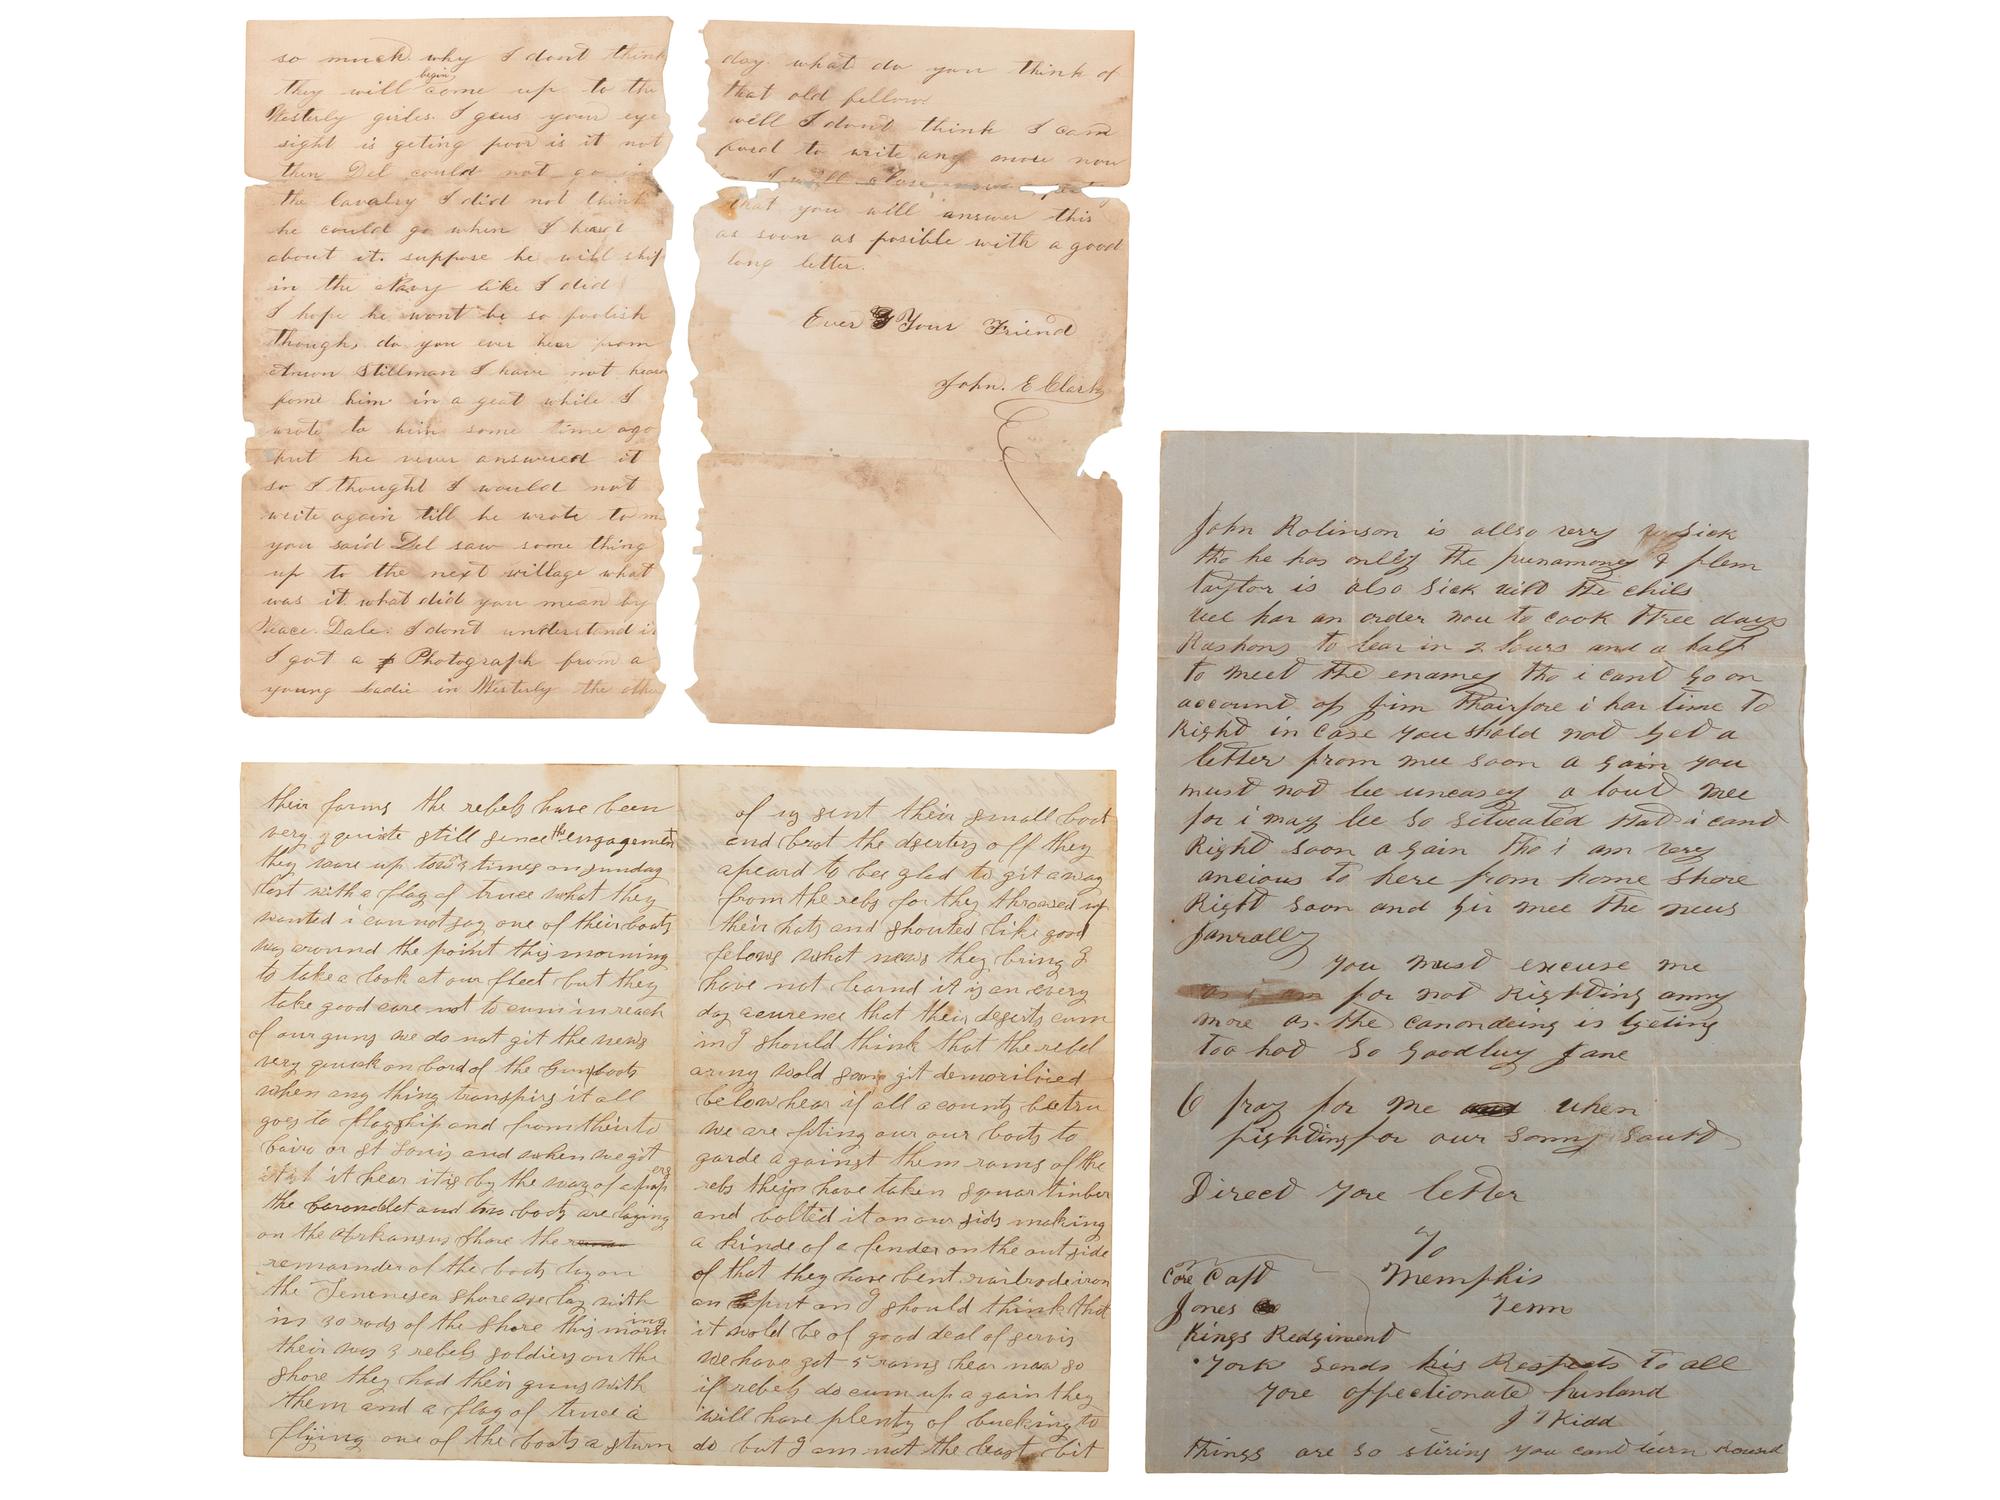 so much why I dont think
they will begin come up to the
Westerly girles. I geus your eye
sight is geting poor is it not
then Del could not go in
the Cavalry I did not think
he could go when I heard
about it. suppose he will ship
in the Navy like I did
I hope he wont be so foolish
though, do you ever hear from
Stillman I have not hear
him in a geat while I
wrote to him some time ago
but he never answered it
so I thought I would not
write again till he wrote to m
you said Del saw some thing
up to the next village what
was it. what did you mean by
Peace. Dale. I dont understand it
I got a Photograph from a
young Ladie in Westerly the othe
day. what do you think of
that old fellow
well I dont think I can
to write any more now
I will close
that you will answer this
as soon as posible with a good
long letter.
Ever Your Friend
John. E Clark
their forms the rebels have been
very quiate still sence the engagement
they ware up tow 3 times on sunday
last with a flag of truce what they
wanted i can not say one of their boats
was around the point this morning
to take a look at our fleet but they
take good care not to cum in reach
of our guns we do not git the news
very quick on bord of the Gunboats
when any thing transpirs it all
goes to flagship and from their to
Cairo or St Louis and when we git
it hear it is by the way of a papers
the barondlet and two boats are laying
on the Arkansus Shore the
remainder of the boats lay on
the Tenenesea shore we lay with
in 30 rods of the shore this morning
their was 3 rebels soldiers on the
shore they had their guns with
them and a flag of truce a
flying one of the boats a sturn
of us sent their small boat
and brot the deserters off they
apeard to bee glad to git away
from the rebs for they throwed up
their hats and shouted like good
felows what news they bring I
have not learnd it is an every
day acurence that their deserts cum
in I should think that the rebel
army wold soon git demorilised
below hear if all acounts be tru
we are fiting our our boats to
garde against them rams of the
rebs they have taken squar timber
and bolted it on our sids making
a kinde of a fender on the out side
of that they have bent railrode iron
an put on I should think that
it wold be of good deal of servis
we have got 5 rams hear now so
if rebels do cum up again they
will have plenty of bucking to
do but I am not the least bit
John Rolinson is allso verry Sick
tho he has onlly the punamoney & flem
taylor is also Sick with the chils
wee har an order now to cook three days
Rashons to lear in 2 hours and a half
to meet the enamey tho i cant go on
account of Jim thairfore i har time to
Right in case you shold not get a
letter from mee soon a gain you
must not be uneasey a bout mee
for i may be so situated that i cant
Right soon a gain tho i am very
ancious to here from home shore
Right soon and gir mee the news
Janrally
you must excuse me
as i am for not Righting anny
more as the canondeing is geting
too hot so goodbuy Jane
O pray for me when
fighting for our Sonny South
Direct yore letter
To
Care Capt Memphis
Jones Tenn
Kings Redgiment
York sends his Respects to all
yore affectionate husland
J T Kidd
things are so stiring you cant turn around